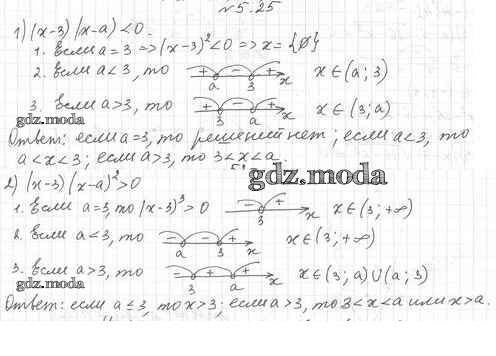 №5.25
1) (x-3)(x-a)<0.
1. Если a=3 => (x-3)²<0 => x={∅}
2. Если a<3, то + - + a 3 x x∈(a;3)
3. Если a>3, то + - + 3 a x x∈(3;a)
gdz.moda
Ответ: если a=3, то решений нет; если a<3, то
a<x<3; если a>3, то 3<x<a.
gdz.moda
2) (x-3)(x-a)²>0
1. Если a=3, то (x-3)³>0 - + 3 x x∈(3;+∞)
2. Если a<3, то - - + a 3 x x∈(3;+∞)
3. Если a>3, то - + + 3 a x x∈(3;a)∪(a;3)
gdz.moda
Ответ: если a≤3, то x>3; если a>3, то 3<x<a или x>a.